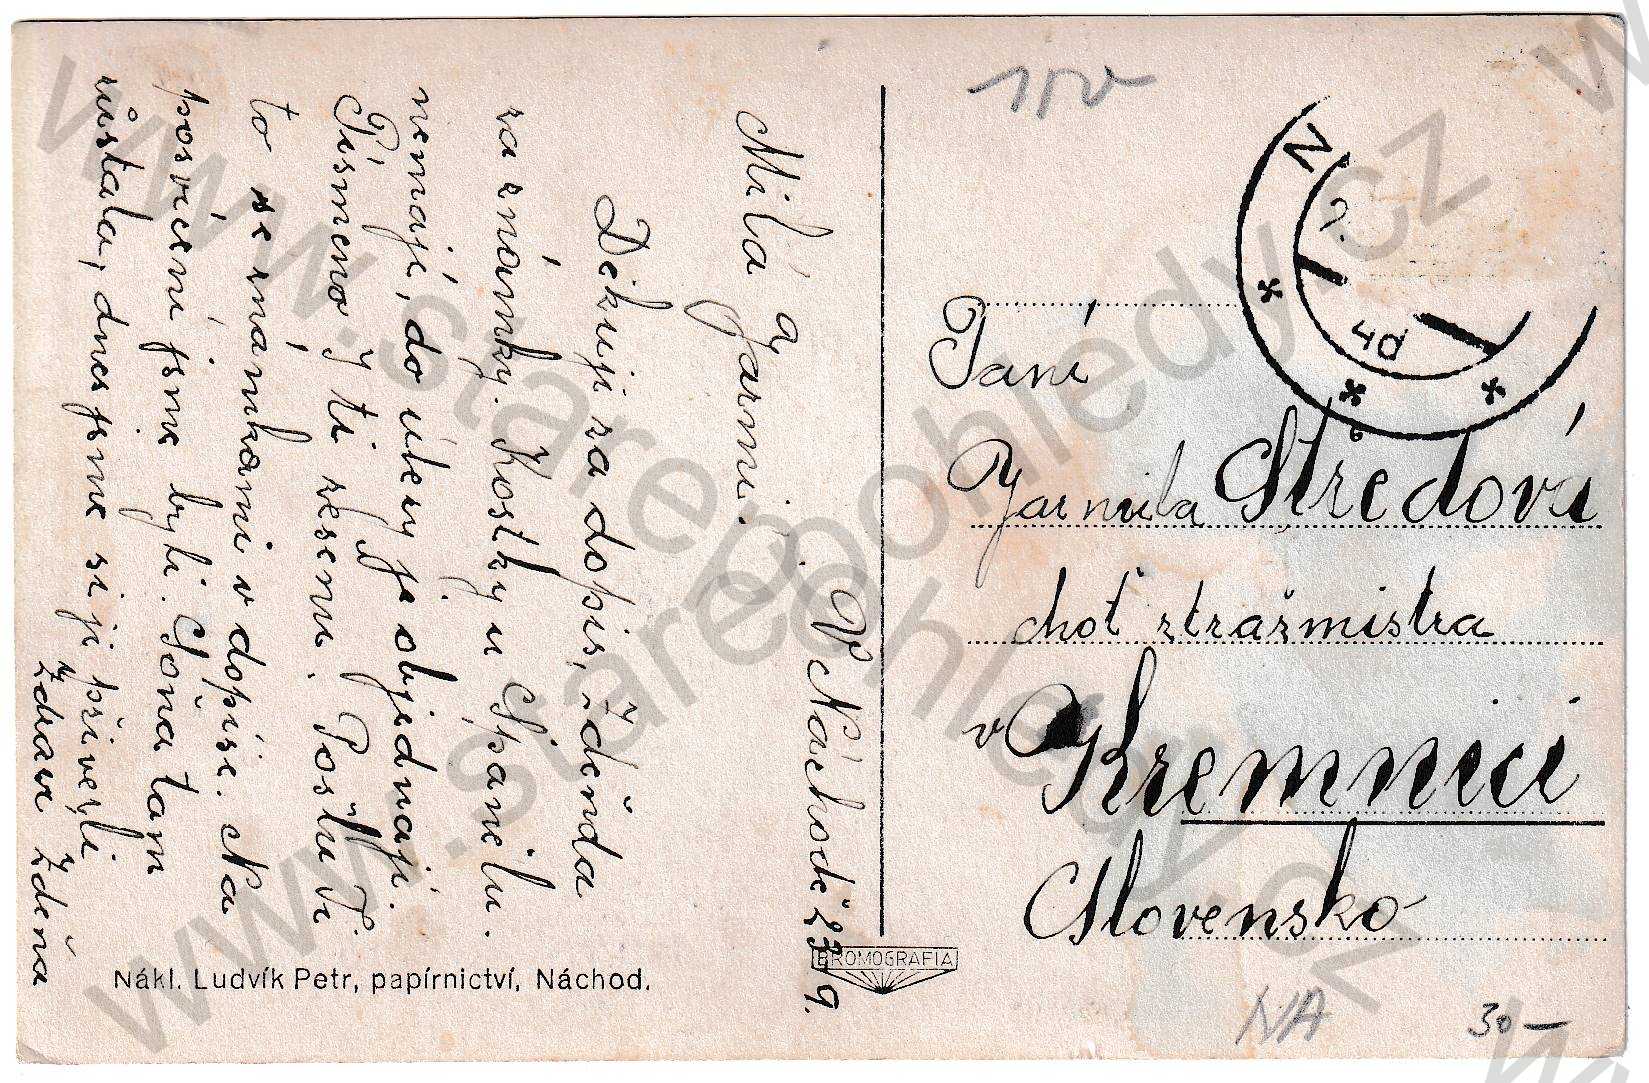 V Náchodě 27. 9.
Milá Jarmi.
Děkuji za dopis, Zdenda
za známky. Kostky u Španělu
nemají, do úterý je objednají.
Písmeno J ti seženu. Pošlu Ti
to se známkami v dopise. Na
posvícení jsme byli. Soňa tam
zůstala, dnes jsme si ji přivezli
Zdraví Zdeňa
Nákl. Ludvík Petr, papírnictví, Náchod.
BROMOGRAFIA
N
OD
Paní
Jarmila Středová
choť stražmistra
v Kremnici
Slovensko
NA
30-
www.starepohledy.cz
www.starepohledy.cz